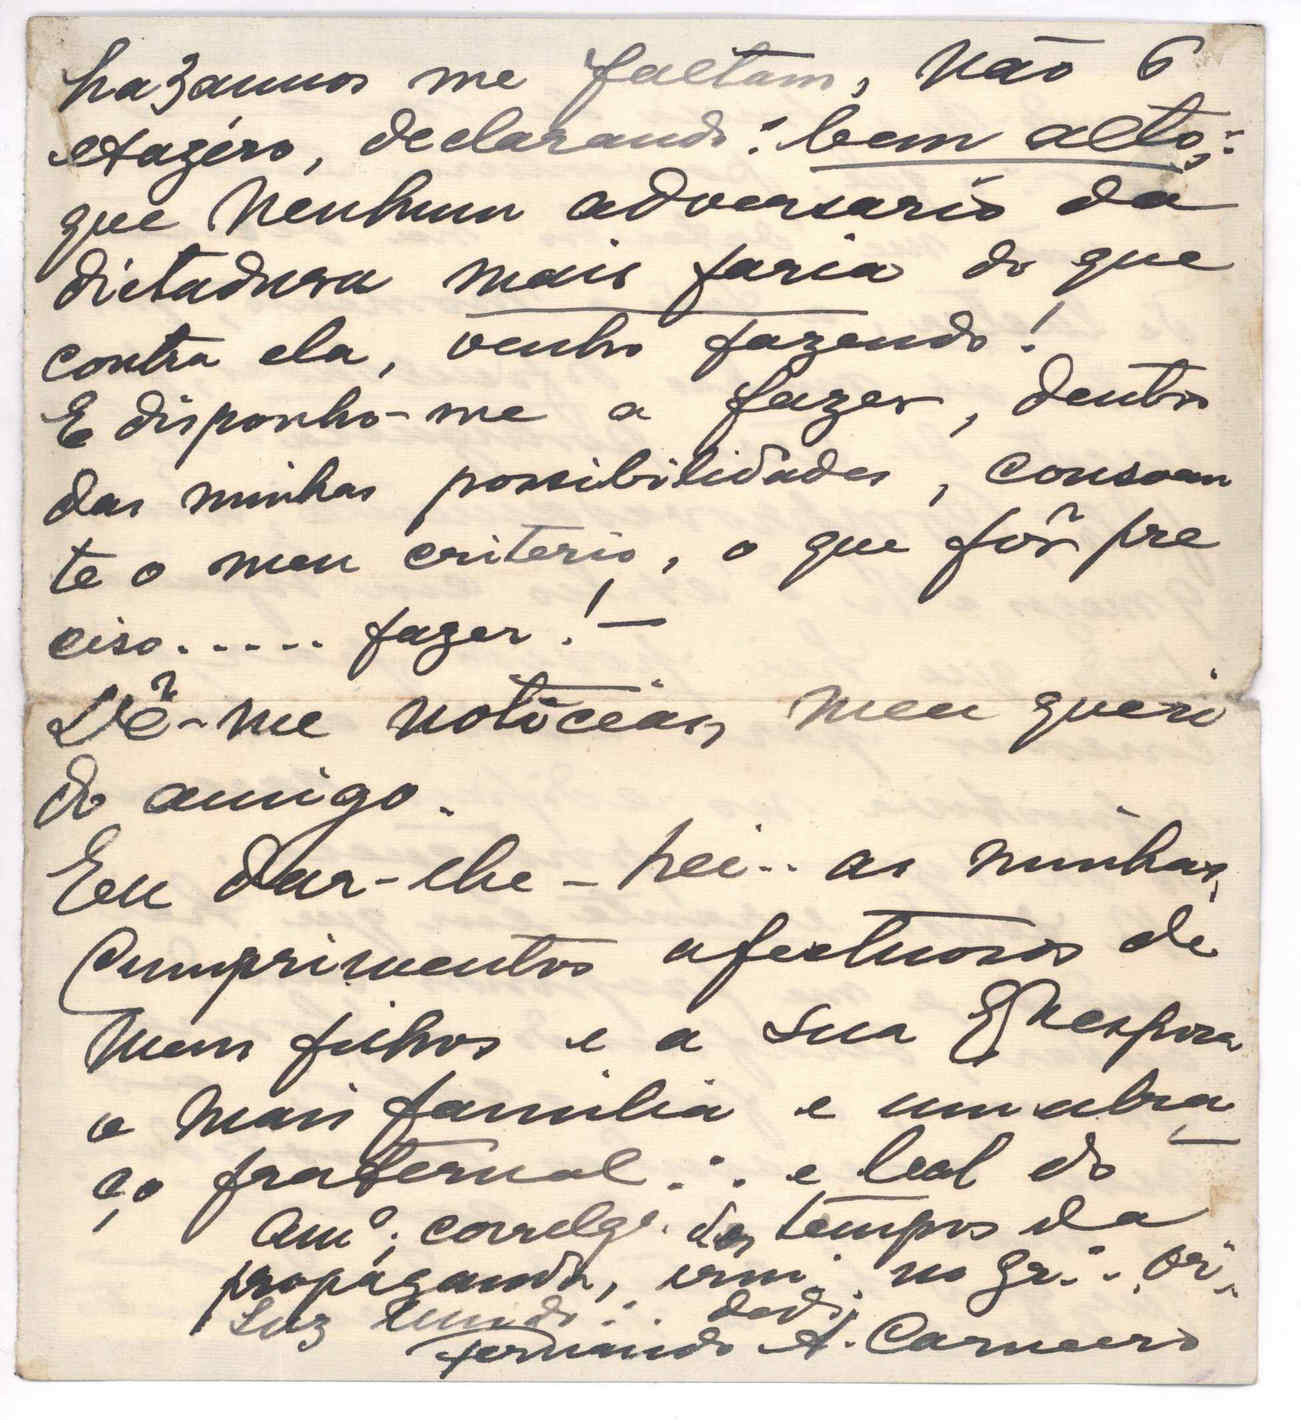 ha 3 annos me faltam, não é
exagéro, declarando: bem alto;:
que nenhum adversario da
dictadura mais faria do que
contra ela, venho fazendo!
E disponho-me a fazer, dentro
das minhas possibilidades, consoan
te o meu criterio, o que fôr pre
ciso..... fazer!—
Dê-me noticias, meu queri
do amigo.
Eu dar-lhe-hei.. as minhas,
Cumprimentos afectuosos de
meus filhos e a sua Exmª esposa
e mais familia e um abra
ço fraternal ∴ e leal do
Amº; correlgº. dos tempos da
propaganda, irm∴ no Gr∴ Or∴
Luz dedº
Fernando A. Carneiro